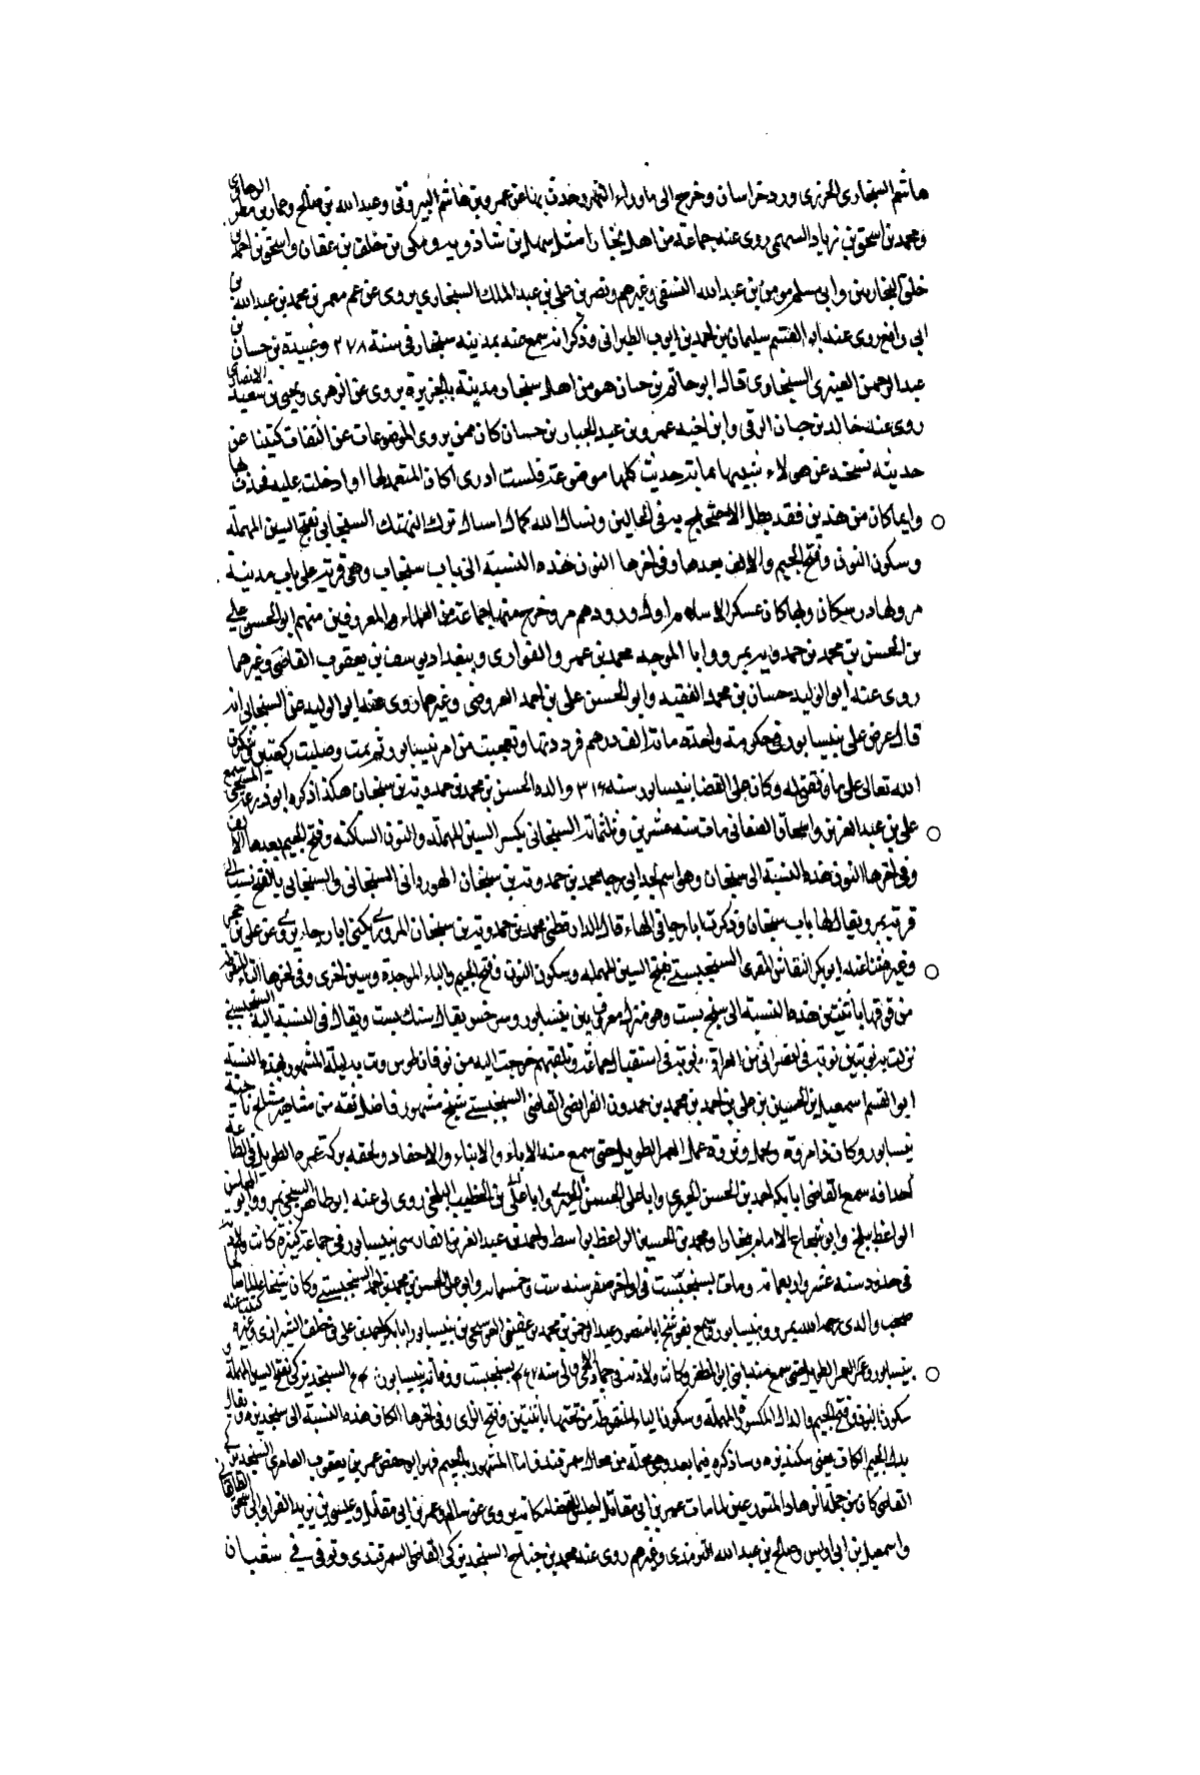 هاشم السنجاري الجزري ورد خراسان وخرج الى ما وراء النهر وحدث بها عن عمرو بن هاشم البيروتي وعبد الله بن صالح وعمار بن مطر الرهاوي
ومحمد بن اسحق بن زياد السهمي روى عنه جماعة من اهل بخارا مثل سهل بن شاذويه ومكي بن خلف بن عفان واسحق بن احمد بن
خلف البخاريين وابي مسلم مومن بن عبد الله النسفي وغيرهم ونصر بن علي بن عبد الملك السنجاري يروى عن عم معمر بن محمد بن عبد الله بن
ابي رافع روى عنه ابو القسم سليمان بن احمد بن ايوب الطبراني وذكر انه سمع منه بمدينه سنجار في سنة ٢٧٨ وعبيدة بن حسان بن
عبد الرحمن العنبري السنجاري قال ابو حاتم بن حبان هو من اهل سنجار مدينة بالجزيرة يروى عن الزهري ويحيى بن سعيد الانصاري
روى عنه خالد بن حيان الرقي وابن اخيه عمرو بن عبد الجبار بن حسان كان ممن يروى الموضوعات عن الثقات كتبنا عن
حديثه نسخه عن هولاء شبيها بمايه حديث كلها موضوعة فلست ادرى اكان المتعمد لها او ادخلت عليه فحدث بها
وايما كان من هذين فقد بطل الاحتجاج به في الحالين ونسال الله كمال اسبال ترك التهتك السنجاني بفتح السين المهملة
وسكون النون وفتح الجيم والالف بعدها وفي اخرها النون هذه النسبة الى باب سنجان وهي قرية على باب مدينة
مرو لها در سنكان وبها كان عسكر الاسلام اول ورودهم مرو خرج منها جماعة من العلماء والمعروفين منهم ابو الحسن علي
بن الحسن بن محمد بن حمدويه بمرو وابا الموجه محمد بن عمرو الفزاري وببغداد يوسف بن يعقوب القاضي وغيرهما
روى عنه ابو الوليد حسان بن محمد الفقيه وابو الحسن علي بن احمد العروضي وغيرهما روى عنه ابو الوليد عن السنجاني انه
قال عرض علي بنيسابور في حكومة واحدة ماية الف درهم فرددتها وتعجبت من امر نيسابور ثم نمت وصليت ركعتين وشكرت
الله تعالى على ما وفقني له وكان على القضا بنيسابور سنه ٣١٤ والده الحسن بن محمد بن حمدويه بن سنجان هكذا ذكره ابو ذرعه السنجي سمع
علي بن عبد العزيز واسحاق الصنعاني مات سنه عشرين وثلثمائة السنجاني بكسر السين المهملة والنون الساكنة وفتح الجيم بعدها الالف
وفي اخرها النون هذه النسبة الى سنجان وهي اسم لجد ابي رجا محمد بن حمدويه بن سنجان الهورقاني السنجاني والسنجاني بالفتح نسبة الى
قرية بمرو يقال لها باب سنجان وذكرت ابا رجا في الهاء قال الدارقطني محمد بن حمدويه بن سنجان المروزي يكنى ابا رجاء يروى عن علي بن حجر
وغيره حدثنا عنه ابو بكر النقاش المقري السنجبستي بفتح السين المهمله وسكون النون وفتح الجيم والباء الموحدة وسين اخرى وفي اخرها التاء المنقوطة
من فوقها باثنتين هذه النسبة الى سنج بست وهو منزل معروف بين نيسابور وسرخس يقال سنك بست ويقال في النسبة اليه السنجبستي
نزلت به نوبتين نوبة في انصرافي من العراق ونوبة في استقبال جماعة وتلقيهم خرجت اليه من نوقان طوس وبت به ليلة المشهور بهذه النسبة
ابو القسم اسمعيل بن الحسين بن علي بن احمد بن محمد بن حمدون الفرايضي القاضي السنجبستي شيخ مشهور فاضل ثقه من مشاهير مشايخ ناحية
نيسابور وكان ذا مروة وتجمل وثروة عمر العمر الطويل حتى سمع منه الاباء والابناء والاحفاد ولحقه بركة عمره الطويل في الطاعة
احدافه سمع القاضي ابا بكر احمد بن الحسن الحيري وابا علي الحسن ابن الخطيب البلخي روى لي عنه ابو طاهر السنجي بمرو وابو
الواعظ ببلخ وابو شجاع الامام ببخارا ومحمد بن الحسين الواعظ بواسط واحمد بن عبد العزيز بنيسابور في جماعة كثيرة كانت ولادته
في حدود سنه عشر واربعمائة ومات بسنجبست في اواخر صفر سنه ست وخمسمايه وابو علي الحسن بن محمد بن احمد السنجبستي وكان شيخا
صحب والدي رحمه الله بمرو وبنيسابور سمع ابا منصور عبد الرحمن بن محمد بن عفيف البوشنجي ابا بكر احمد بن علي بن خلف الشيرازي وغيره كتبت عنه
بنيسابور وعمر العمر الطويل حتى سمع منه ابني ابو المظفر وكانت ولادته في جمادى سنه بسنجبست ووفاته بنيسابور السنجديزكي بفتح السين المهملة
سكون النون وفتح الجيم والدال المكسورة المهملة وسكون الياء المنقوطة من تحتها باثنتين وفتح الزاى وفي اخرها الكاف هذه النسبة الى سنجديزه ويقال
بدل الجيم الكاف يعني سنكديزه وساذكره فيما بعد وهي محلة من محال سمرقند فاما المشهور بالجيم فهو ابو حفص عمر بن يعقوب العامري السنجديزكي
القاضي كان من جملة الزهاد المتورعين عمر بن ابي مقاتل يروى عن سالم وعمر بن ابي مقاتل وعيسى بن يزيد الفراء وابي اسحق الطالقاني
واسمعيل بن ابي اويس وصالح بن عبد الله الترمذي وغيرهم روى عنه محمد بن جناح السنجديزكي القاضي السمرقندي وتوفي في شعبان